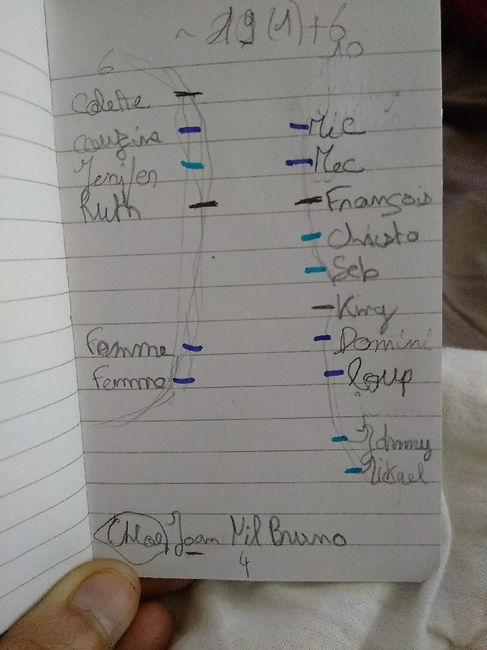 ~ 19 (1) + 6
6
10
Colette
couzine
Jenifen
Ruth
Femme
Femme
Mic
Mec
François
Christo
Seb
King
Domini
Loup
Johnny
Mickael
Chloé Joan Mil Bruno
4